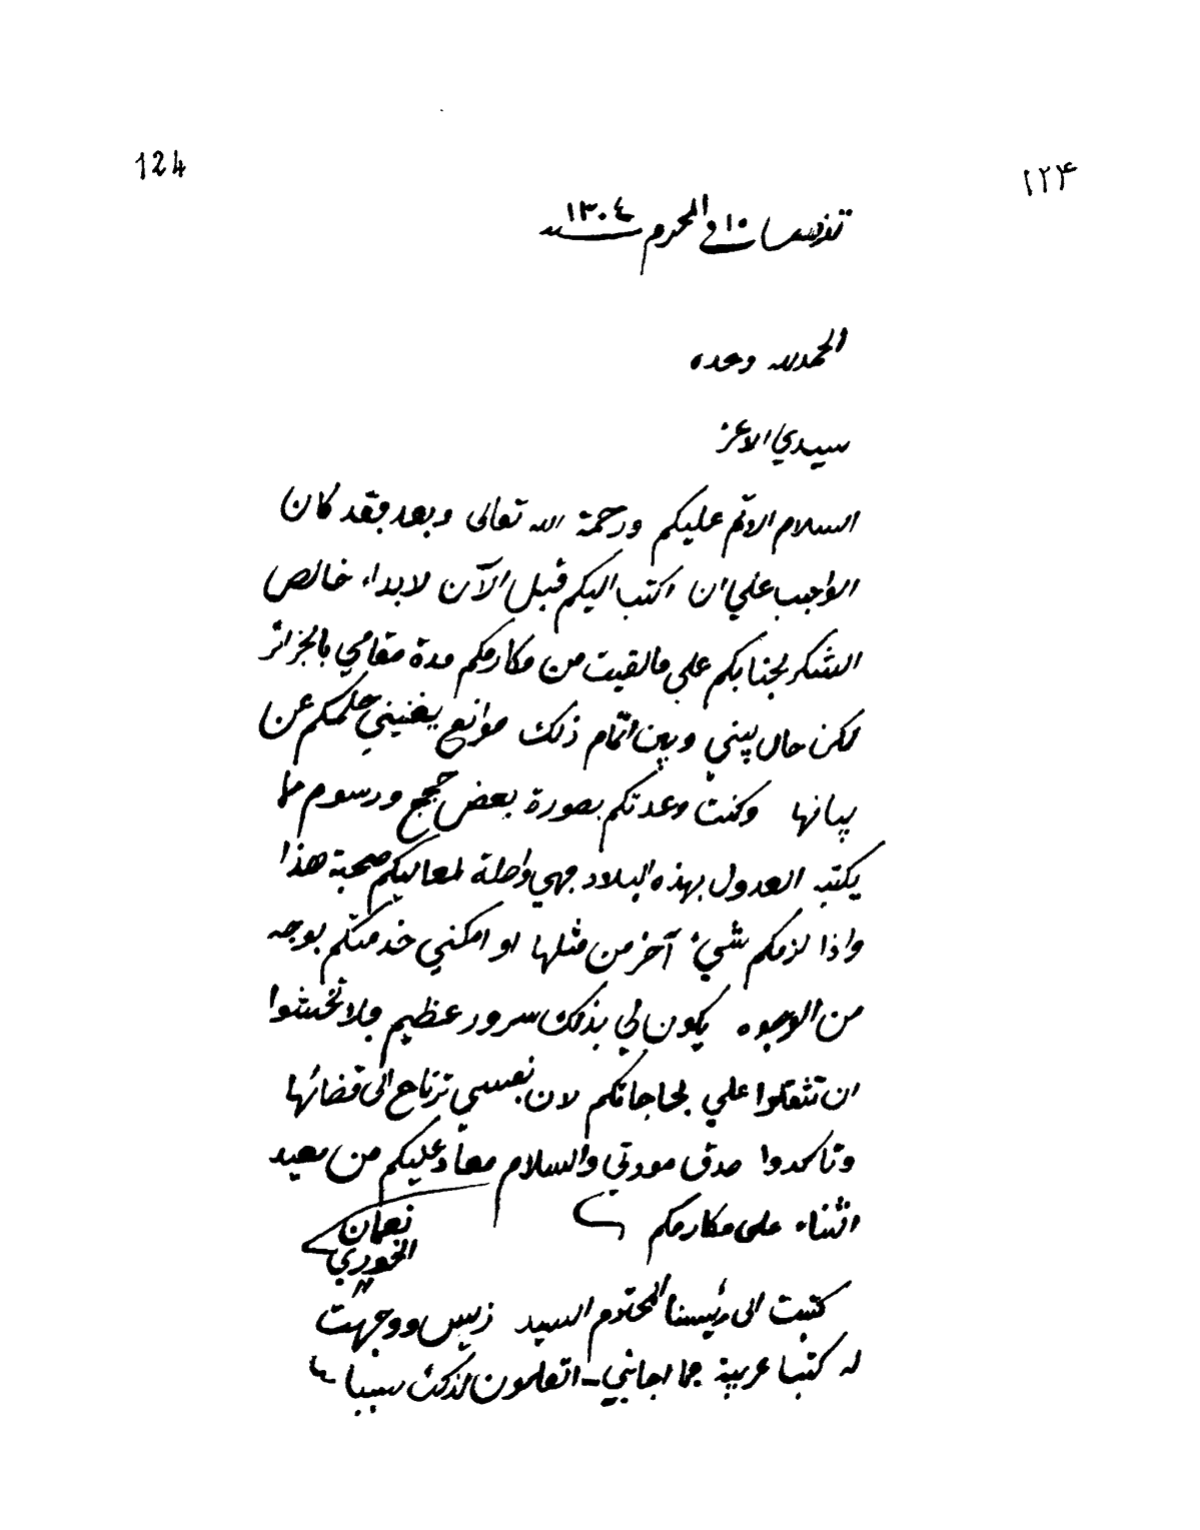 124
١٢٤
تونس في ١٠ المحرم سنة ١٣٠٤
الحمد لله وحده
سيدي الاعز
السلام الاتم عليكم ورحمة الله تعالى وبعد فقد كان
الواجب علي ان اكتب اليكم قبل الآن لابداء خالص
الشكر لجنابكم على مالقيت من مكارمكم مدة مقامي بالجزائر
لكن حال بيني وبين اتمام ذلك موانع يغنيني حلمكم عن
بيانها وكنت وعدتكم بصورة بعض حجج ورسوم مما
يكتبه العدول بهذه البلاد فهي واصلة لمعاليكم صحبة هذا
واذا لزمكم شيء آخر من مثلها او امكنني خدمتكم بوجه
من الوجوه يكون لي بذلك سرور عظيم ولا تخشوا
ان تثقلوا علي بحاجاتكم لان نفسي ترتاح الى قضائها
وتاكدوا صدق مودتي والسلام معاد عليكم من معيد
الثناء على مكارمكم
نعمان
الخوري
كتبت الى رئيسنا المحترم السيد زيس ووجهت
له كتبا عربية فما اجابني - اتعلمون لذلك سببا